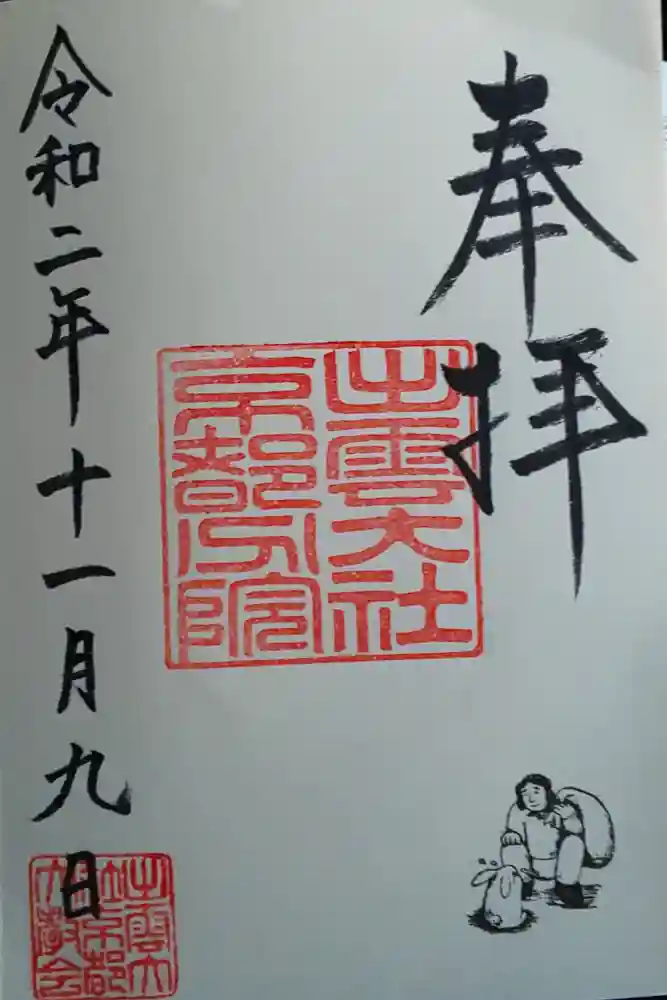 奉拝
出雲大社
京都分院
令和二年十一月九日
出雲大
社京都
分教会